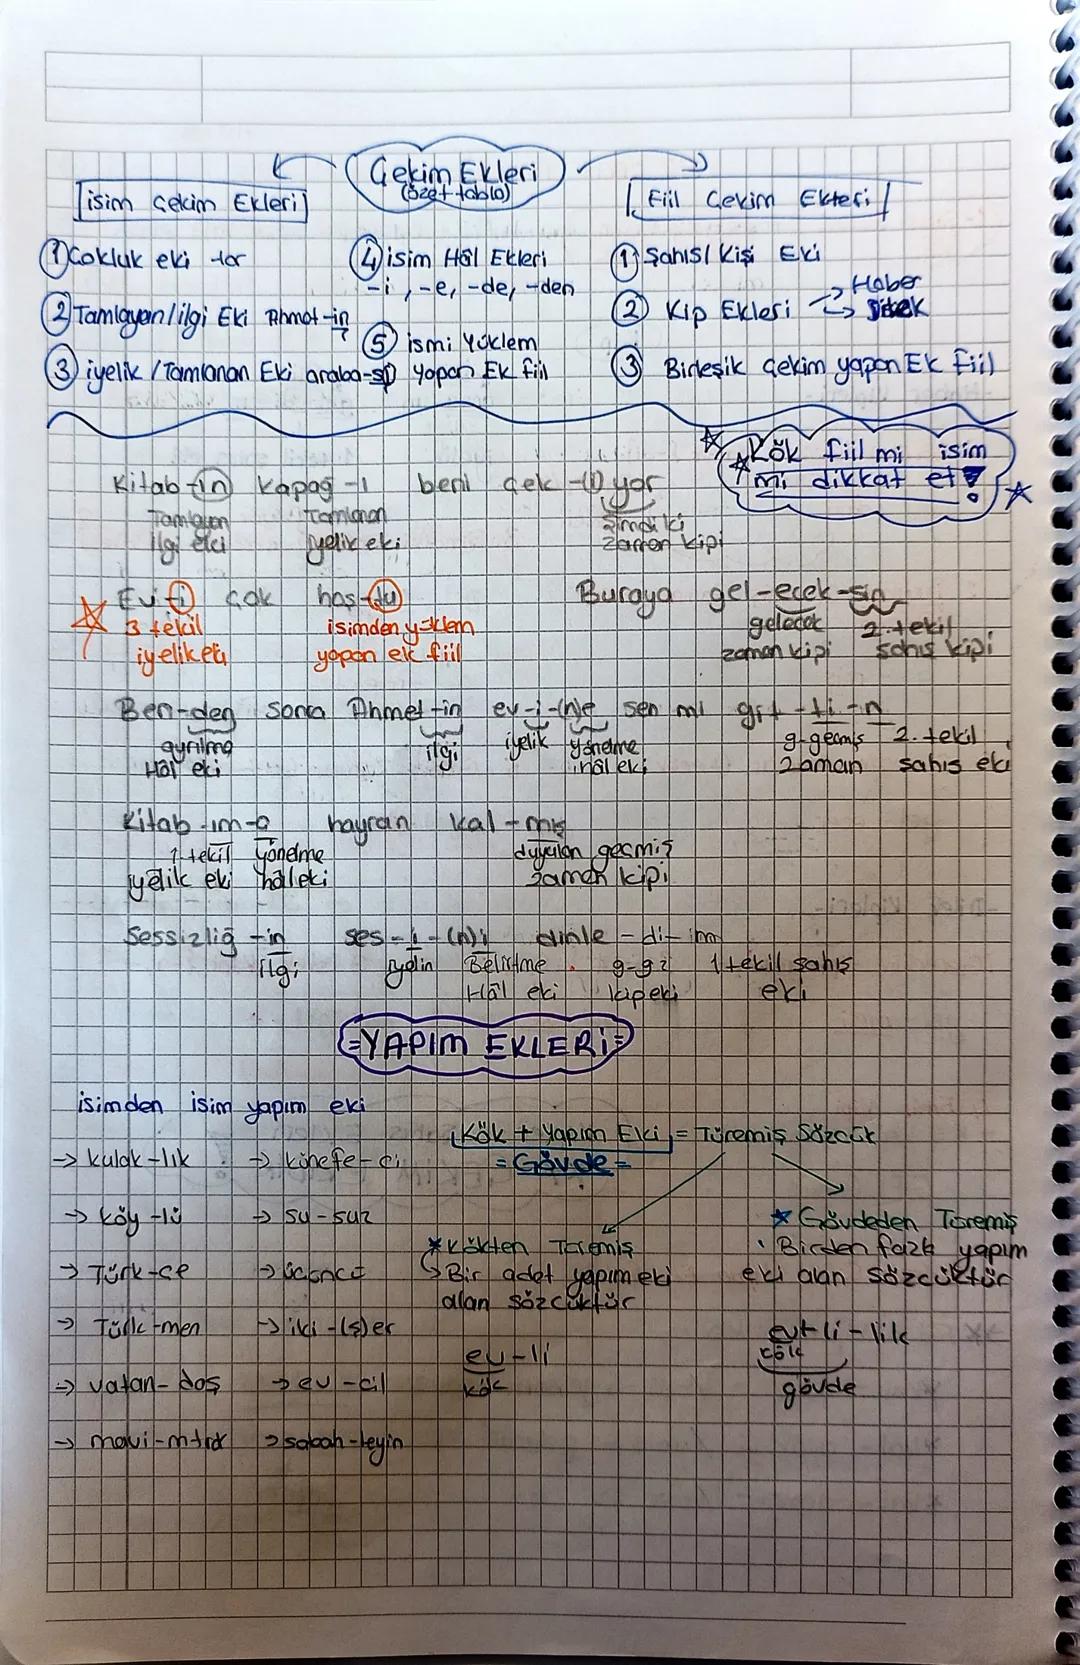 Çekim Ekleri
(özet tablo)
isim Çekim Ekleri
Fiil Çekim Ekleri
① Çokluk eki -lar
② Tamlayan/ilgi Eki Ahmet-in
③ iyelik/Tamlanan Eki araba-sı
④ isim Hâl Ekleri
-i, -e, -de, -den
⑤ ismi Yüklem
yapan Ek fiil
① Şahıs/Kişi Eki
② Kip Ekleri → Haber
→ Dilek
③ Birleşik Çekim yapan Ek fiil
Kök fiil mi isim
mi dikkat et!
Kitab-ın kapağ-ı beni çek-(i)yor
Tamlayan Tamlanan Şimdiki
ilgi eki iyelik eki zaman kipi
Ev-i çok hoş-du Buraya gel-ecek-sin
3 tekil isimden yüklem gelecek 2. tekil
iyelik eki yapan ek fiil zaman kipi şahıs kipi
Ben-den sonra Ahmet-in ev-i-(n)e sen mi git-ti-n
ayrılma ilgi iyelik yönelme g-geçmiş 2. tekil
Hâl eki hâl eki zaman şahıs eki
Kitab-ım-a hayran kal-mış
1. tekil yönelme duyulan geçmiş
iyelik eki hâl eki zaman kipi
Sessizliğ-in ses-i-(n)i dinle-di-im
ilgi iyelin Belirtme g-gz 1 tekil şahıs
Hâl eki kip eki eki
=YAPIM EKLERİ=
isimden isim yapım eki
Kök + Yapım Eki = Türemiş Sözcük
= Gövde =
→ kulak-lık → künefe-ci
→ köy-lü → su-suz
→ Türk-çe → üçüncü
→ Türk-men → iki-(ş)er
→ vatan-daş → ev-cil
→ mavi-mtrak → sabah-leyin
* Kökten Türemiş
↳ Bir adet yapım eki
alan sözcüktür
ev-li
kök
* Gövdeden Türemiş
· Birden fazla yapım
eki alan sözcüktür
ev-li-lik
kök
gövde